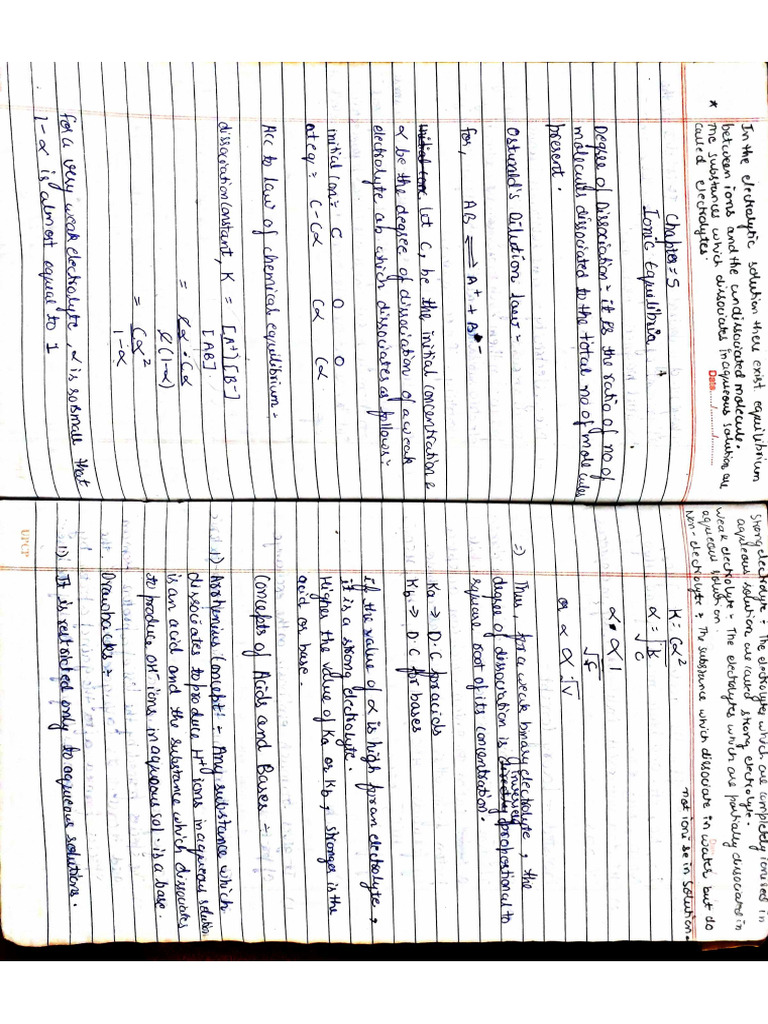 In the electrolytic solution there exist equilibrium
between ions and the undissociated molecule.
* The substances which dissociates in aqueous solution are
called electrolytes.
Date...../...../..........
Chapter = 5
Ionic Equilibria
Degree of Dissociation = it is the ratio of no of
molecules dissociated to the total no of molecules
present.
Ostwald's Dilution law =
for, AB ⇌ A+ + B-
Let C, be the initial concentration &
α be the degree of dissociation of a weak
electrolyte ab which dissociates as follows:-
initial con = C 0 0
at eq = C-Cα Cα Cα
Acc to law of chemical equilibrium =
dissociation constant, K = [A+] [B-]
[AB]
= Cα · Cα
C(1-α)
= Cα²
1-α
for a very weak electrolyte, α is so small that
1-α is almost equal to 1
Strong electrolyte = The electrolytes which are completely ionised in
aqueous solution are called strong electrolyte.
weak electrolyte = The electrolytes which are partially dissociated in
aqueous solution.
Non-electrolyte = The substance which dissociate in water but do
not ionise in solution.
K = Cα²
α = √K
√C
α ∝ 1
√C
or α ∝ √V
=) Thus, for a weak binary electrolyte, the
degree of dissociation is inversely propostional to
square root of its concentration.
Ka → D.C for acids
Kb → D.C for bases
If the value of α is high for an electrolyte,
it is a strong electrolyte.
Higher the value of Ka or Kb, stronger is the
acid or base.
Concepts of Acids and Bases =
1) Arrhenius Concept! = Any substance which
dissociates to produce H+ ions in aqueous solution
is an acid and the substance which dissociates
to produce OH- ions in aqueous sol. is a base.
Drawbacks =
(i) It is restricted only to aqueous solutions.
UPCP